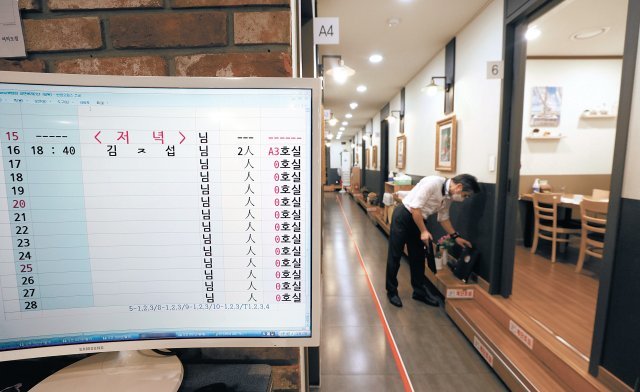 A4
6
15 ----- < 저 녁 > 님 --- ------
16 18 : 40 김 ㅈ 섭 님 2人 A3호실
17 님 人 0호실
18 님 人 0호실
19 님 人 0호실
20 님 人 0호실
21 님 人 0호실
22 님 人 0호실
23 님 人 0호실
24 님 人 0호실
25 님 人 0호실
26 님 人 0호실
27 님 人 0호실
28 님 人 0호실
5-1,2,3/8-1,2,3/9-1,2,3/10-1,2,3/T1,2,3,4
SAMSUNG